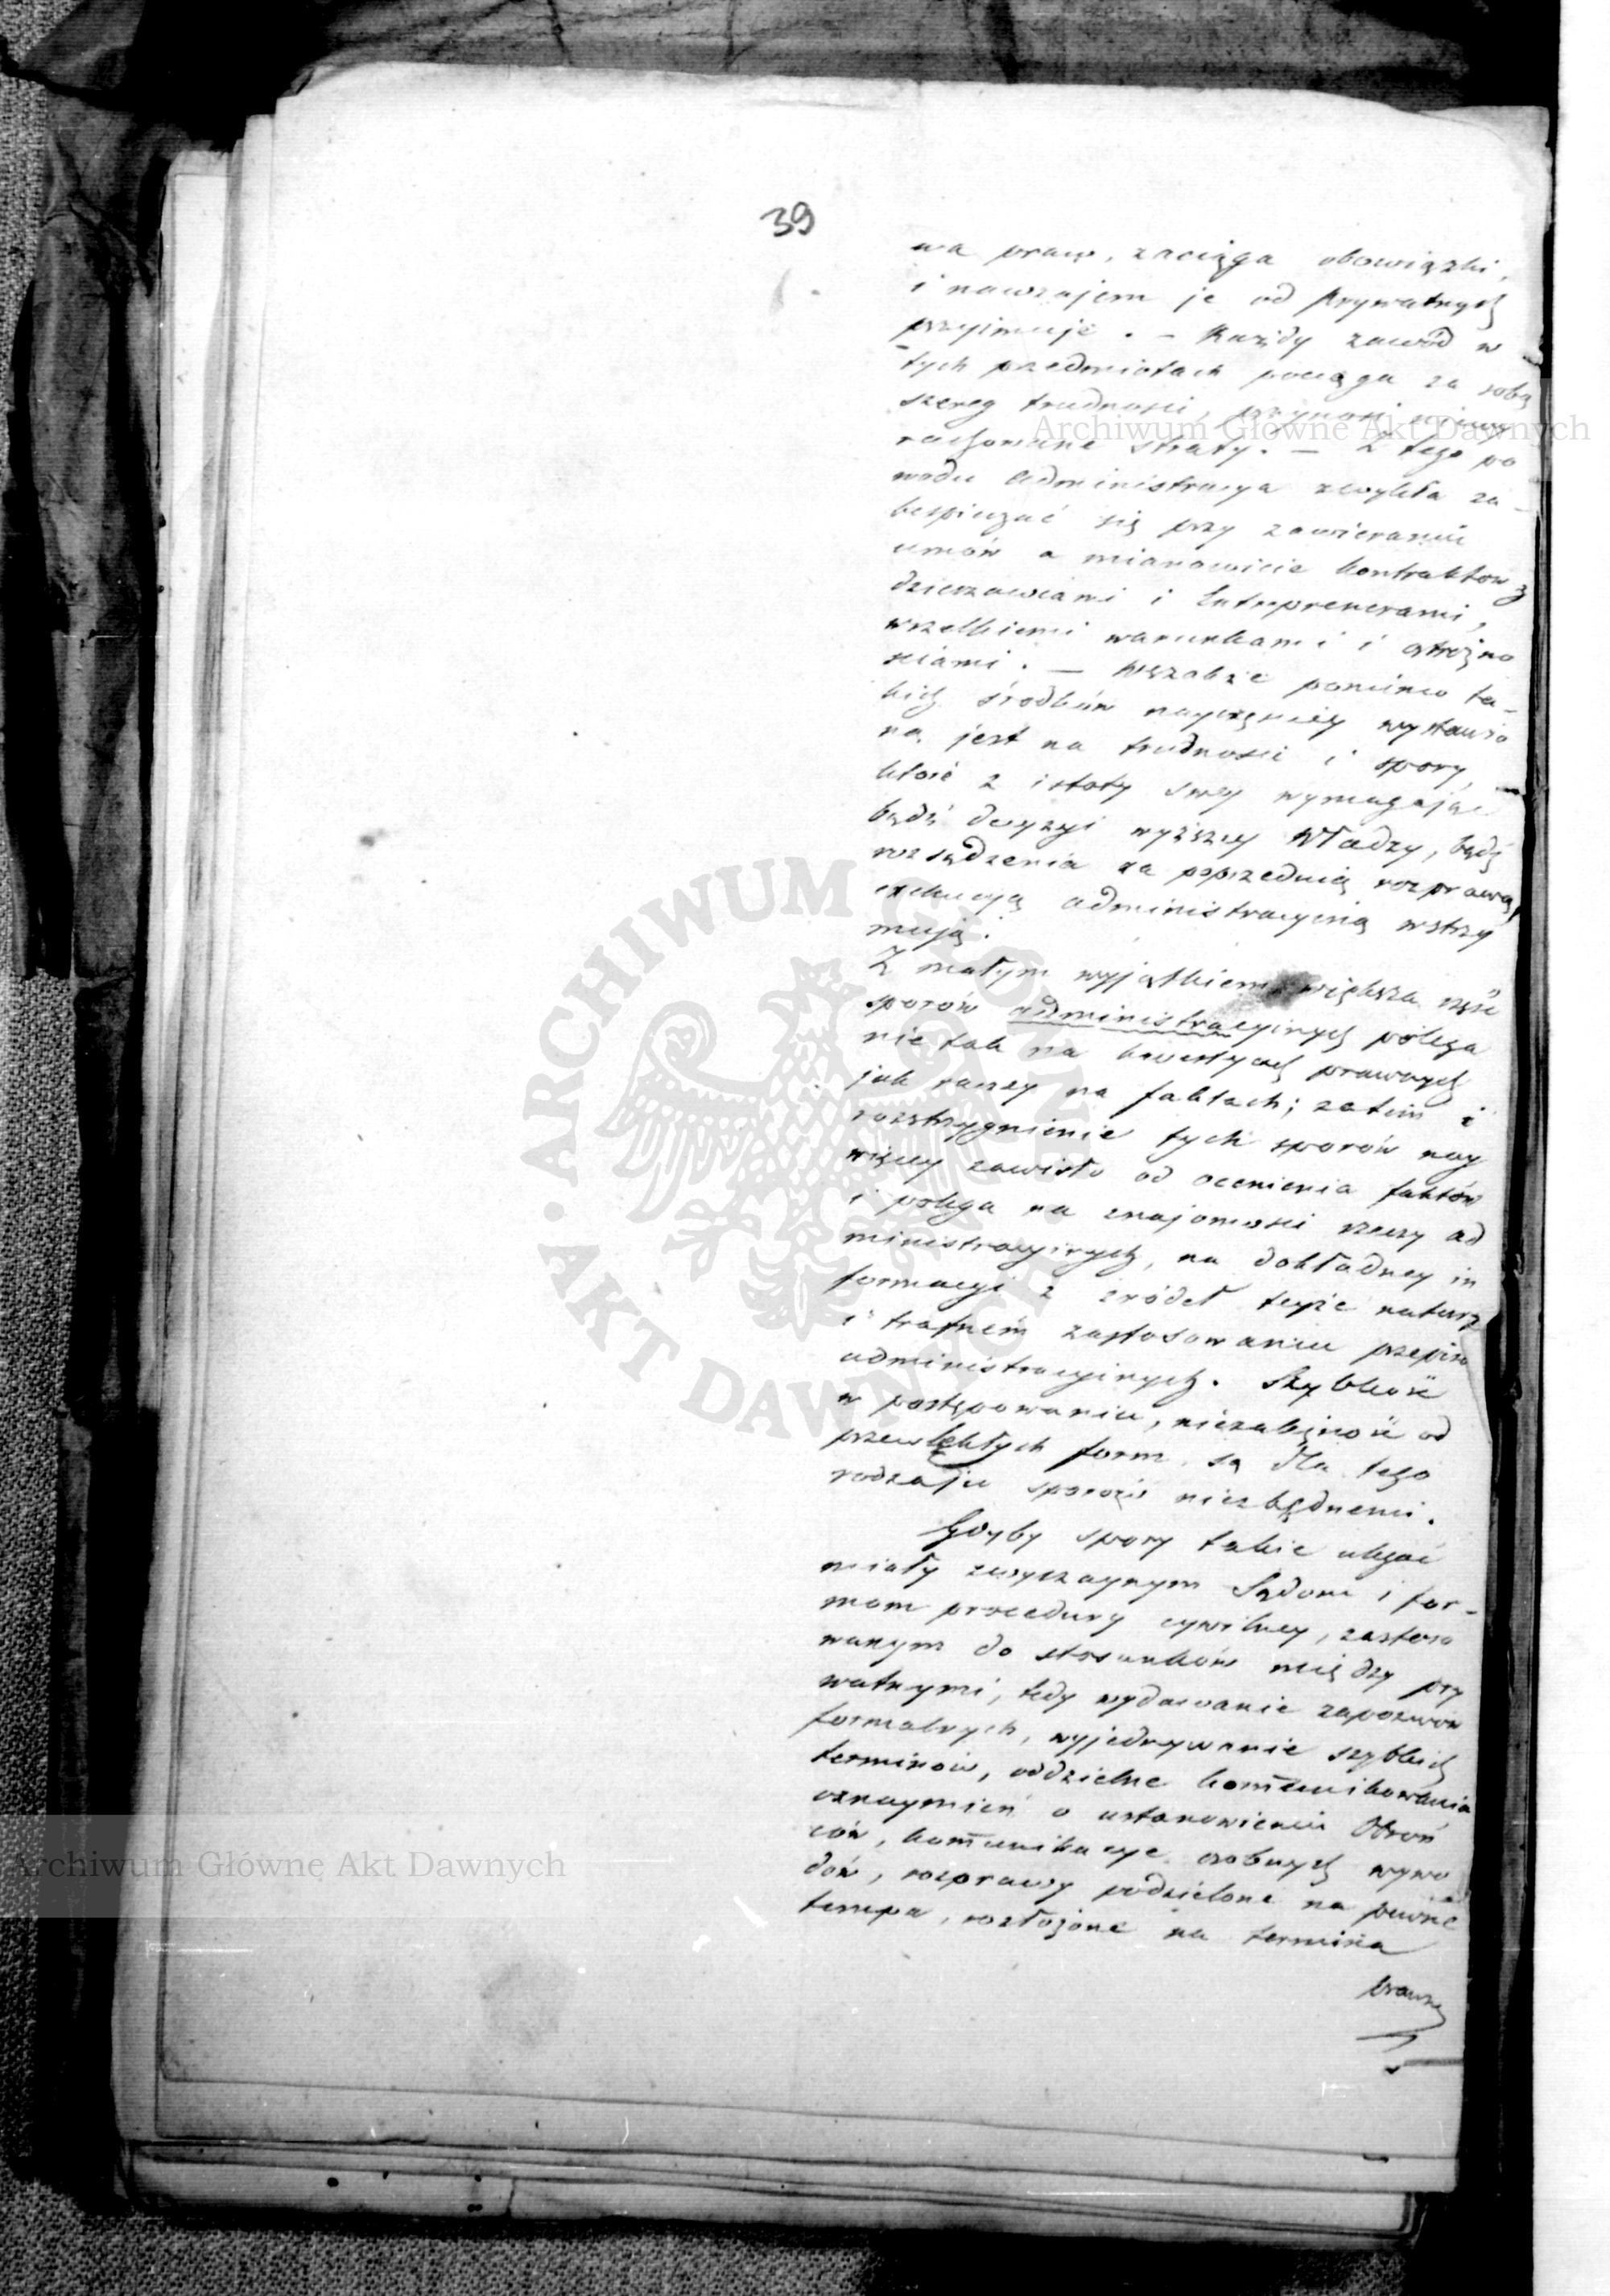 39
wa praw, zaciąga obowiązki,
i nawzajem je od Prywatnych
przyjmuje. – Każdy zawód w
tych przedmiotach pociąga za sobą
szereg trudności, przynosi niewy
rachowane straty. – Z tego po
wodu Administracya zwykła za-
bespieczać się przy zawieraniu
umów a mianowicie kontraktów z
dzierżawcami i Entreprenerami,
wszelkiemi warunkami i ostrożno
ściami. – Wszakże pomimo ta-
kich środków nayczęściey wystawio
na jest na trudności i spory,
które z istoty swey wymagając
bądź decyzyi wyższey Władzy, bądź
rozsądzenia za poprzednią rozprawą,
exekucyą administracyiną wstrzy
mują.
Z małym wyjątkiem większa część
sporów administracyinych polega
nie tak na kwestyach prawnych
jak raczey na faktach; zatem i
rozstrzygnienie tych sporów nay
więcey zawisło od ocenienia faktów
i polega na znajomości rzeczy ad
ministracyinych, na dokładney in
formacyi z źródeł teyże natury
i trafnem zastosowaniu przepisów
administracyinych. Szybkość
w postępowaniu, niezależność od
przewlekłych form są dla tego
rodzaju sporów niezbędnemi.
Gdyby spory takie ulegać
miały zwyczaynym Sądom i for-
mom procedury cywilney, zastoso
wanym do stosunków między pry
watnymi, tedy wydawanie zapozwów
formalnych, wyjednywanie szybkich
terminów, oddzielne kom̄unikowania
oznaymień o ustanowieniu Obroń
ców, kom̄unikacye osobnych wywo
dów, rozprawy podzielone na pewne
tempa, rozłożone na termina
prawne
Archiwum Główne Akt Dawnych
ARCHIWUM GŁÓWNE
AKT DAWNYCH
Archiwum Główne Akt Dawnych